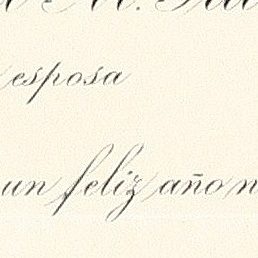 esposa
un feliz año n